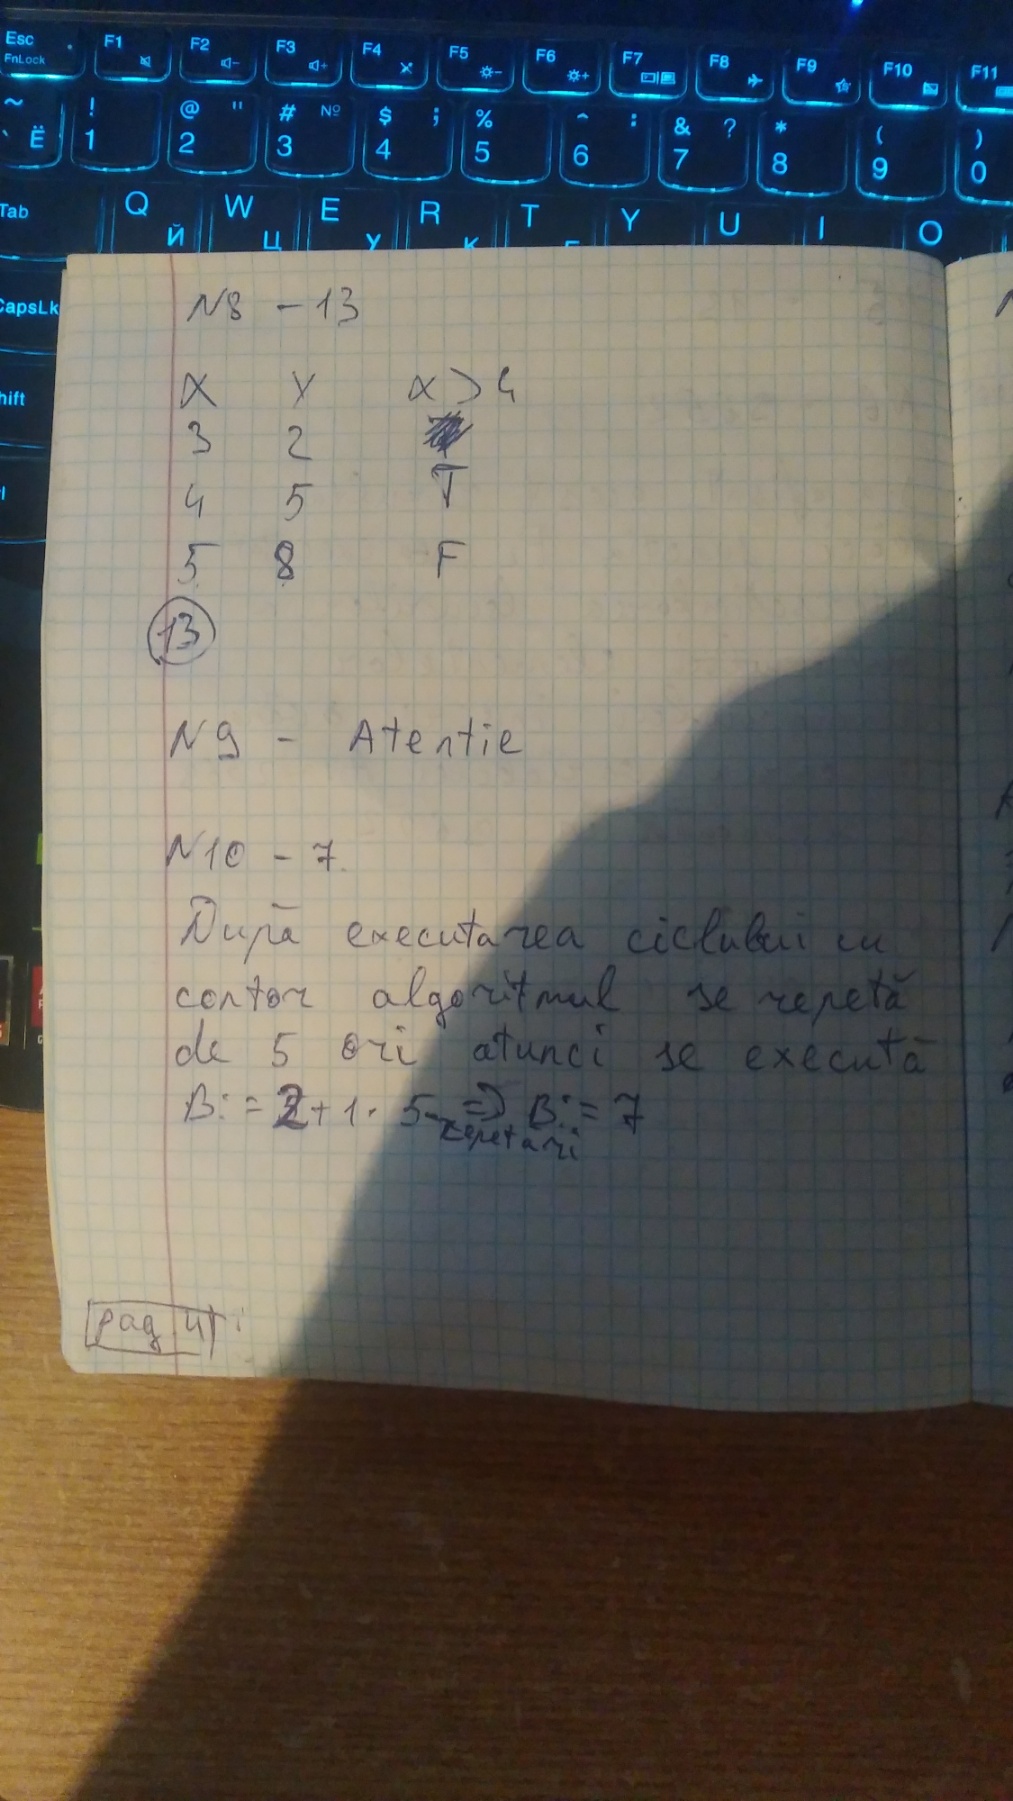 Esc F1 F2 F3 F4 F5 F6 F7 F8 F9 F10 F11
FnLock
~ ! @ " # № $ ; % ^ : & ? * ( )
` Ё 1 2 3 4 5 6 7 8 9 0
Tab Q W E R T Y U I O
Й Ц У К
CapsLk
hift
N8 - 13
X Y x > y
3 2
4 5 T
5 8 F
13
N9 - Atentie
N10 - 7.
După executarea ciclului cu
contor algoritmul se repetă
de 5 ori atunci se execută
B:= 2+1· 5 => B:= 7
repetari
pag 4